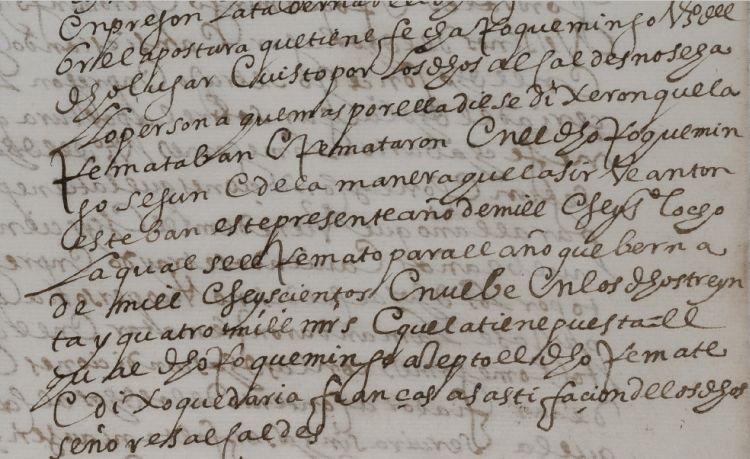 En pregon la taberna
bre la postura que tiene fecha Roque mingo Vº del
dho lugar E visto por los dhos alcaldes no se ha
llo persona que mas por ella diese dixeron que la
Remataban E Remataron En el dho Roque min
go segun E de la manera que la sirve anton
esteban este presente año de mill E seysº E ocho
La qual se le Remato para el año que berna
de mill E seyscientos E nuebe En los dhos treyn
ta y quatro mill mrs E que la tiene puesta el
qual dho Roque mingo acepto el dho Remate
E dixo que daria fianças a satisfaçion de los dhos
señores alcaldes